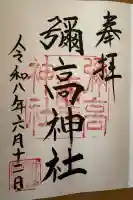 奉拝
彌高神社
令和八年六月十二日